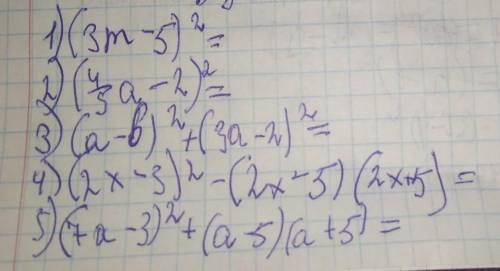 1) (3m - 5)² =
2) (4/5 a - 2)² =
3) (a - b)² + (3a - 2)² =
4) (2x - 3)² - (2x - 5)(2x + 5) =
5) (7a - 3)² + (a - 5)(a + 5) =